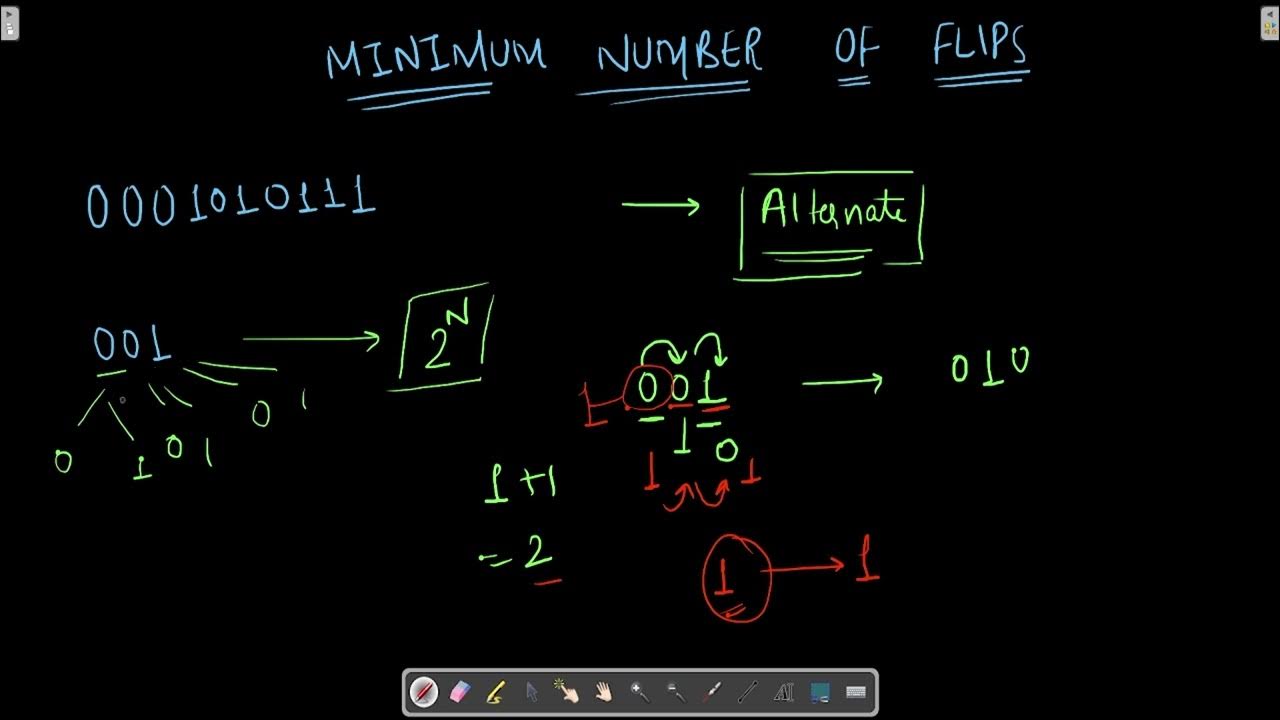 MINIMUM NUMBER OF FLIPS
0001010111 → Alternate
001 → 2^N
0 1 0 1 0 1
1 001 → 010
1 0
1 1
1 + 1
= 2
1 → 1
AI